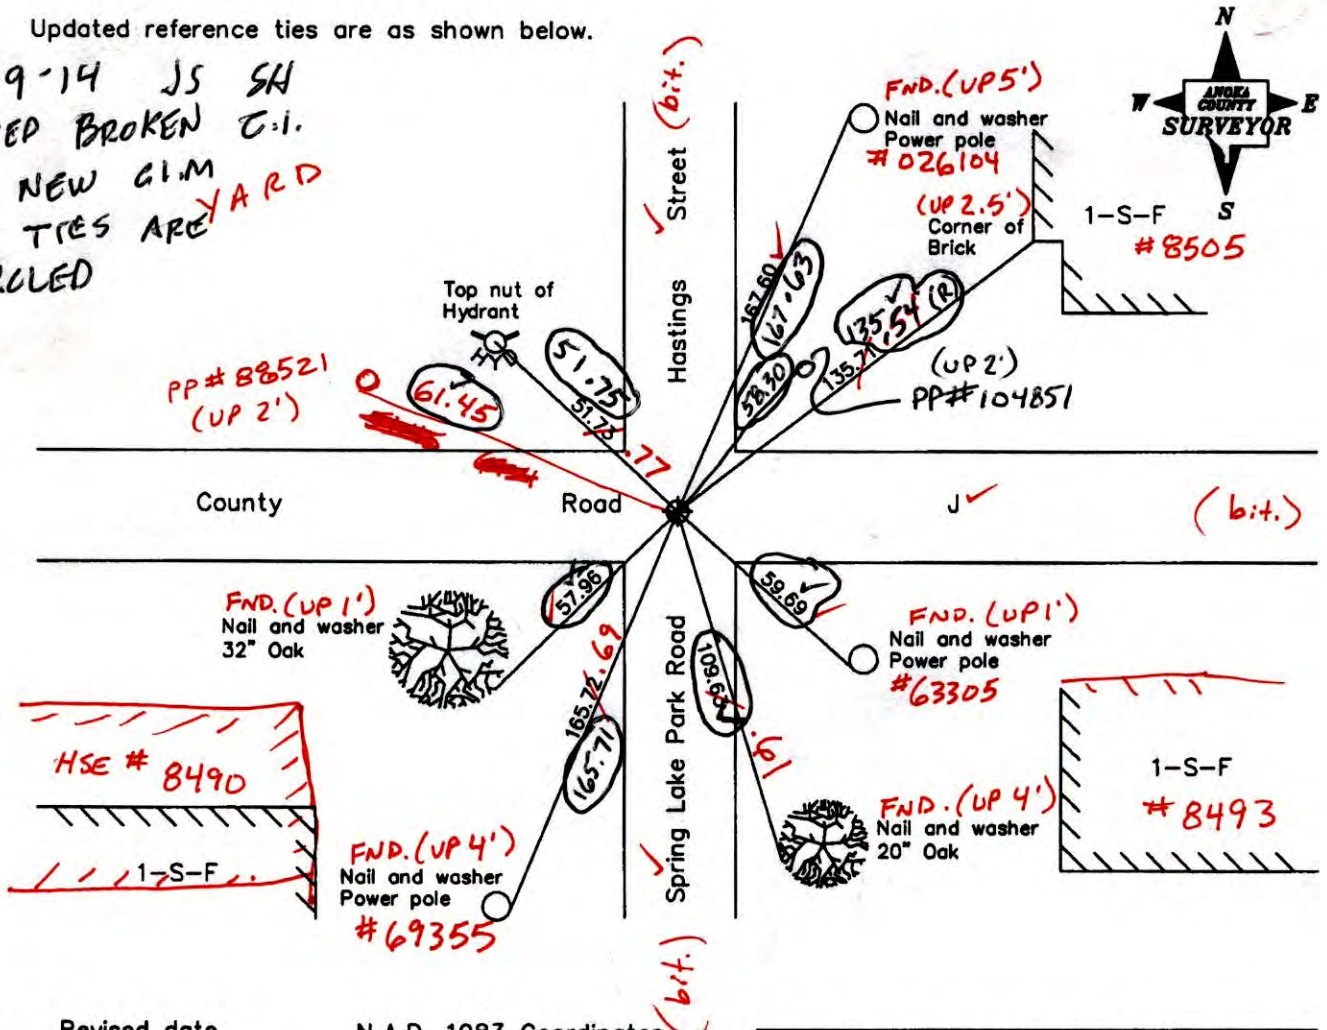 Updated reference ties are as shown below.
9-14 JS SH
BROKEN C.I.
NEW CI.M
TIES ARE YARD
N
W
ANOKA
COUNTY
SURVEYOR
E
S
Street (bit.)
Hastings
FND. (UP 5')
Nail and washer
Power pole
# 026104
(UP 2.5')
Corner of
Brick
1-S-F
#8505
Top nut of
Hydrant
HYD
PP# 88521
(UP 2')
61.45
51.75
51.73
.77
167.60
167.63
58.30
135.54 (R)
135.71
(UP 2')
PP# 104851
County Road J
(bit.)
FND. (UP 1')
Nail and washer
32" Oak
57.96
59.69
FND. (UP 1')
Nail and washer
Power pole
#63305
165.72
.69
165.71
109.61
Spring Lake Park Road
(bit.)
HSE # 8490
1-S-F
FND. (UP 4')
Nail and washer
Power pole
#69355
FND. (UP 4')
Nail and washer
20" Oak
1-S-F
# 8493
Revised date
N.A.D. 1983 Coordinates